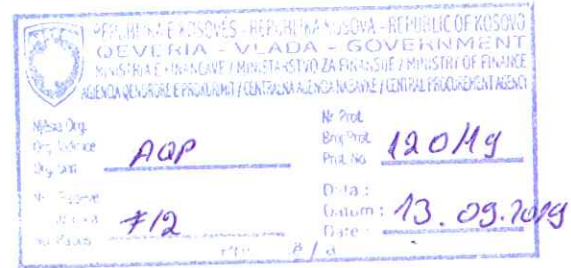 REPUBLIKA E KOSOVËS - REPUBLIKA KOSOVA - REPUBLIC OF KOSOVO
QEVERIA - VLADA - GOVERNMENT
MINISTRIA E FINANCAVE / MINISTARSTVO ZA FINANSIJE / MINISTRY OF FINANCE
AGJENCIA QENDRORE E PROKURIMIT / CENTRALNA AGENCIJA NABAVKE / CENTRAL PROCUREMENT AGENCY
Njësia Org.
Org. Jedinice
Org. Unit
AQP
Nr. Prot.
Broj Prot.
Prot. No.
120/19
Nr.
7/2
Data :
Datum :
Date :
13.09.2019